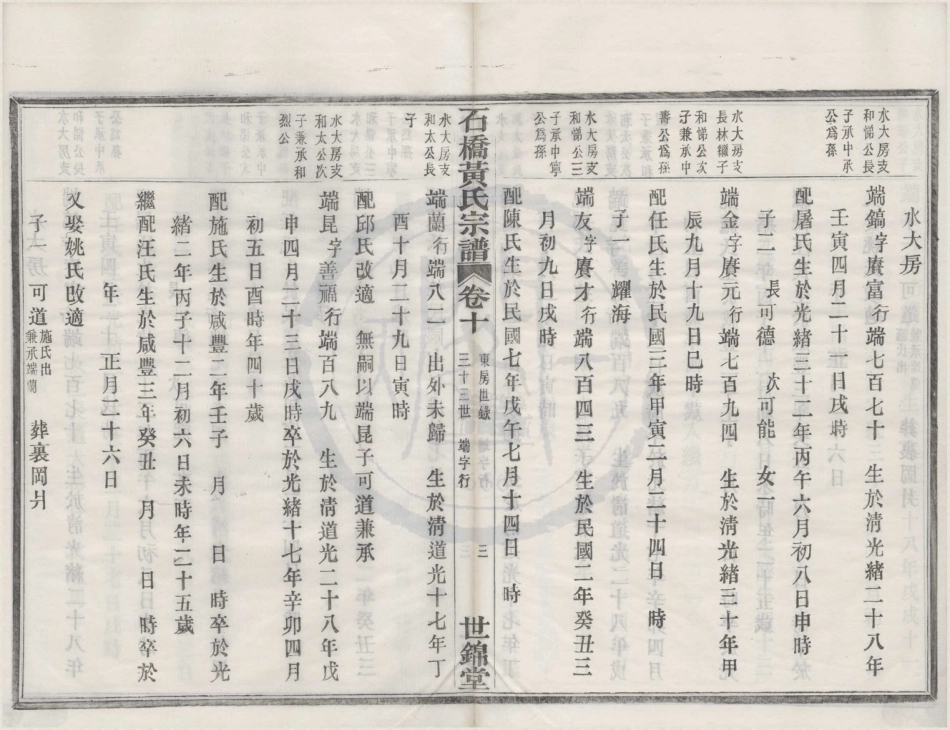 水大房
水大房支
和悌公長
子承中承
公爲孫
端鎬字賡富行端七百七十三生於清光緒二十八年
壬寅四月二十五日戌時
配屠氏生於光緒三十二年丙午六月初八日申時
子二 長可德 次可能 女一
水大房支
長林繼子
和悌公次
子兼承中
壽公爲孫
端金字賡元行端七百九四 生於清光緒三十年甲
辰九月十九日巳時
配任氏生於民國三年甲寅二月二十四日 時
子一 耀海
水大房支
和悌公三
子承中寧
公爲孫
端友字賡才行端八百四三 生於民國二年癸丑三
月初九日戌時
配陳氏生於民國七年戊午七月十四日 時
石橋黃氏宗譜 卷十
東房世錄
三十三世 端字行
三
世錦堂
水大房支
和太公長
子
端蘭行端八二 出外未歸 生於清道光十七年丁
酉十月二十九日寅時
配邱氏改適 無嗣以端昆子可道兼承
水大房支
和太公次
子兼承和
烈公
端昆字善福行端百八九 生於清道光二十八年戊
申四月二十三日戌時卒於光緒十七年辛卯四月
初五日酉時年四十歲
配施氏生於咸豐二年壬子 月 日 時卒於光
緒二年丙子十二月初六日未時年二十五歲
繼配汪氏生於咸豐三年癸丑 月 日 時卒於
年 正月二十六日
又娶姚氏改適
子一 可道 施氏出
兼承端蘭
葬裏岡爿